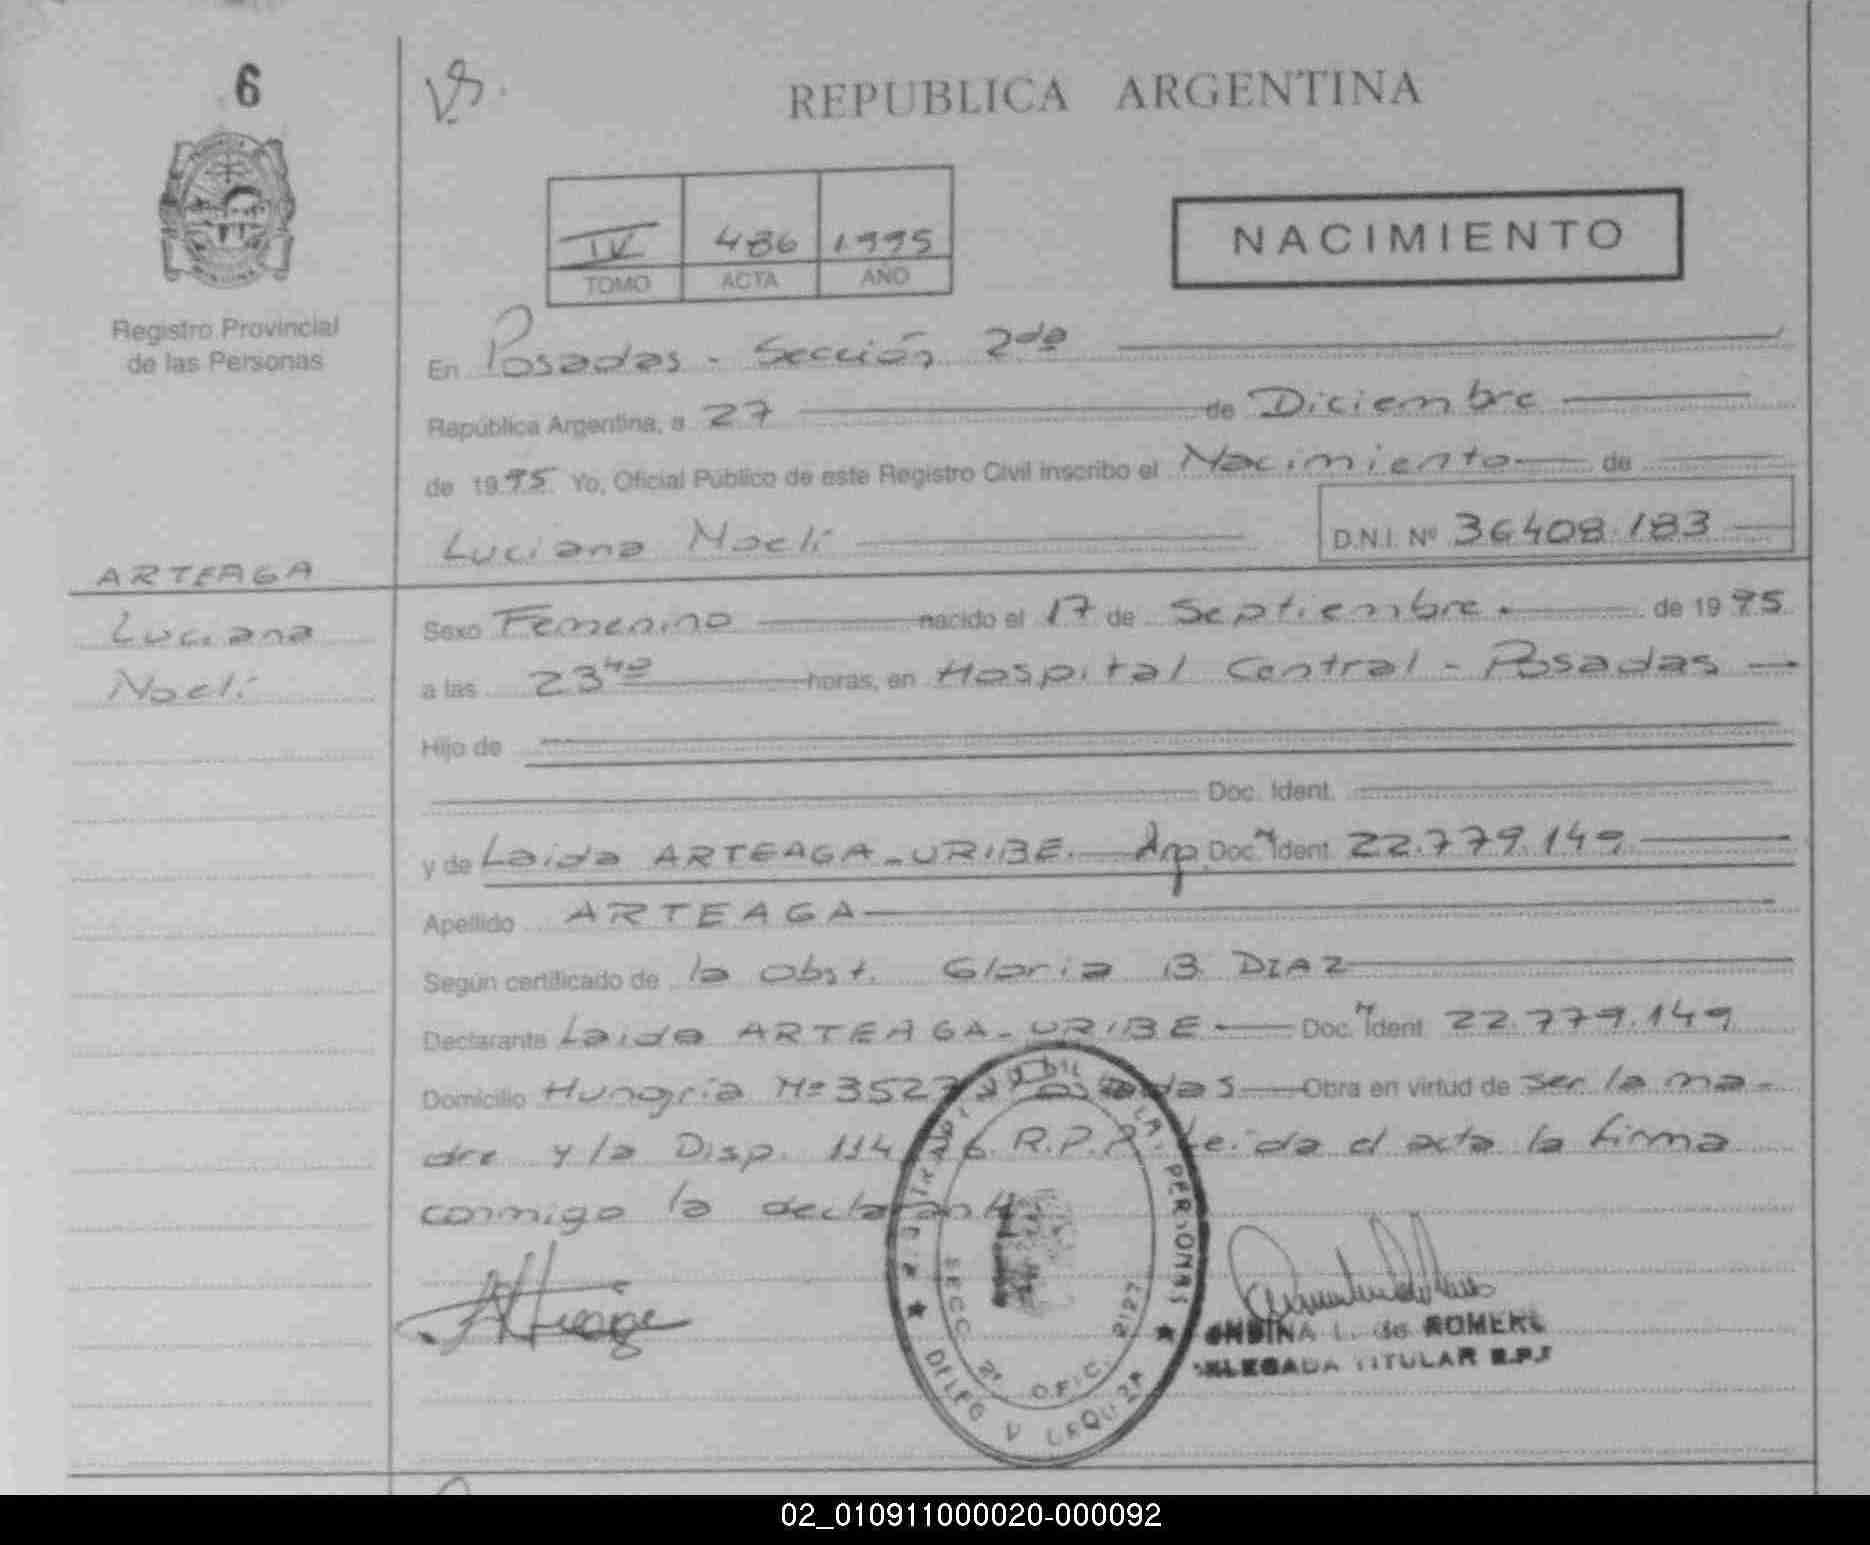 6
REPUBLICA ARGENTINA
IV 486 1995
TOMO ACTA AÑO
NACIMIENTO
Registro Provincial
de las Personas
En Posadas - Sección 2da
República Argentina, a 27 de Diciembre
de 1995 Yo, Oficial Público de este Registro Civil inscribo el Nacimiento de
Luciana Noeli D.N.I. Nº 36408.183
ARTEAGA
Luciana
Noeli
Sexo Femenino nacido el 17 de Septiembre de 1995
a las 23 40 horas, en Hospital Central - Posadas
Hijo de
Doc. Ident.
y de Laida ARTEAGA-URIBE Arg. Doc. N Ident 22.779.149
Apellido ARTEAGA
Según certificado de la Obst. Gloria B. DIAZ
Declarante Laida ARTEAGA-URIBE Doc. N Ident 22.779.149
Domicilio Hungría Nº 3527 Posadas Obra en virtud de ser la ma-
dre y la Disp. 114 R.P.P. Leida el acta la firma
conmigo la declarante
PERSONAS
SECC. 2ª OFIC. 2127
DELEG V URQUIZA
ONDINA L. de ROMERO
DELEGADA TITULAR R.P.P
02_010911000020-000092